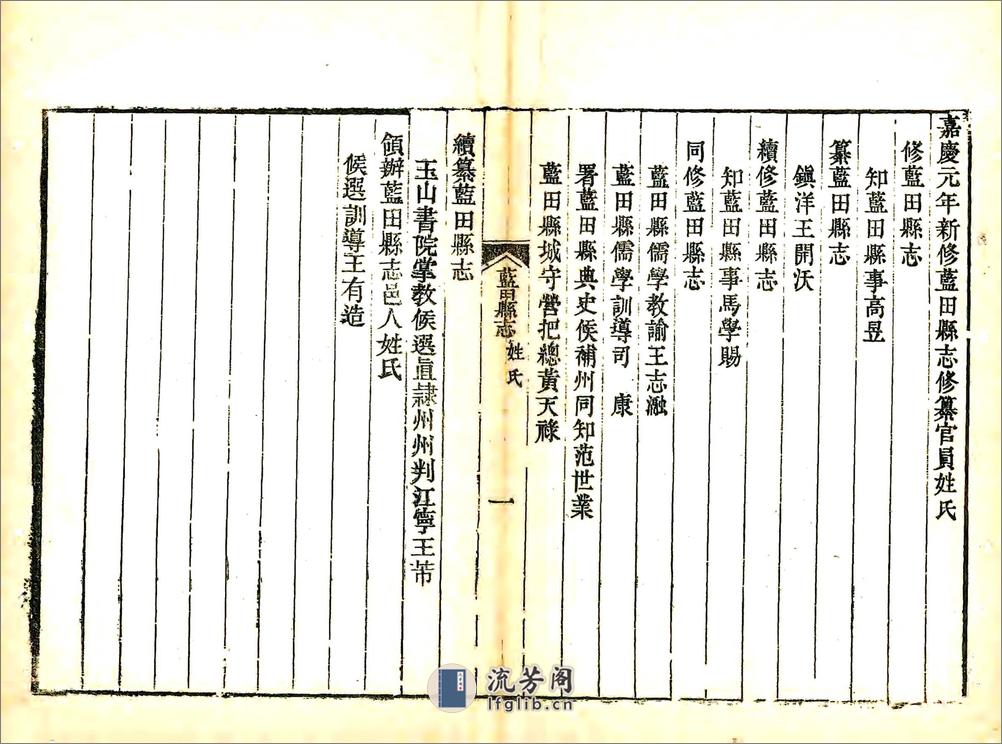 嘉慶元年新修藍田縣志修纂官員姓氏
修藍田縣志
知藍田縣事高昱
纂藍田縣志
鎮洋王開沃
續修藍田縣志
知藍田縣事馬學賜
同修藍田縣志
藍田縣儒學教諭王志瀜
藍田縣儒學訓導司　康
署藍田縣典史候補州同知范世業
藍田縣城守營把總黃天祿
藍田縣志　姓氏　一
續纂藍田縣志
玉山書院掌教候選直隸州州判江寧王芾
領辦藍田縣志邑人姓氏
候選訓導王有造
流芳阁
lfglib.cn